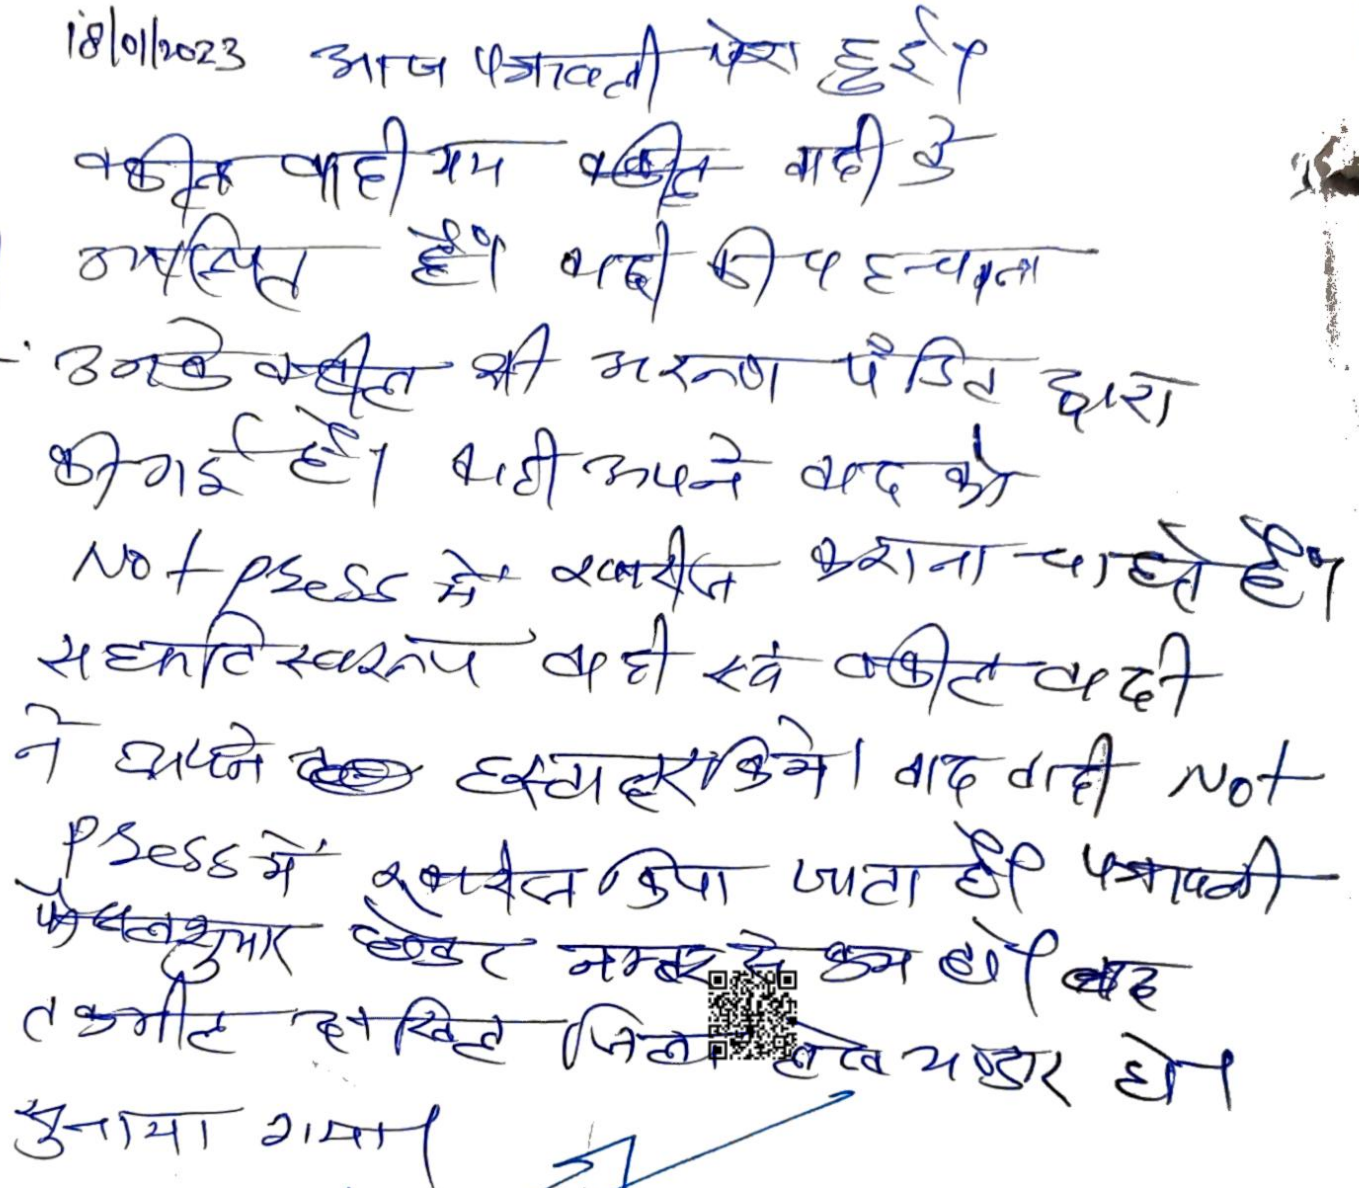 18/01/2023 आज पत्रावली पेश हुई।
वकील वादी मय वकील वादी के
उपस्थित है। वादी की पहचान
उनके वकील श्री अरूण पंडित द्वारा
की गई है। वादी अपने वाद को
Not press में खारीज कराना चाहते है।
सहमति स्वरूप वादी एवं वकील वादी
ने अपने हस्ताक्षर किये। वाद वादी Not
press में खारीज किया जाता है। पत्रावली
फैसलशुमार होकर नम्बर से कम हो। बाद
तकमील दाखिल जिला लेख भण्डार हो।
सुनाया गया।